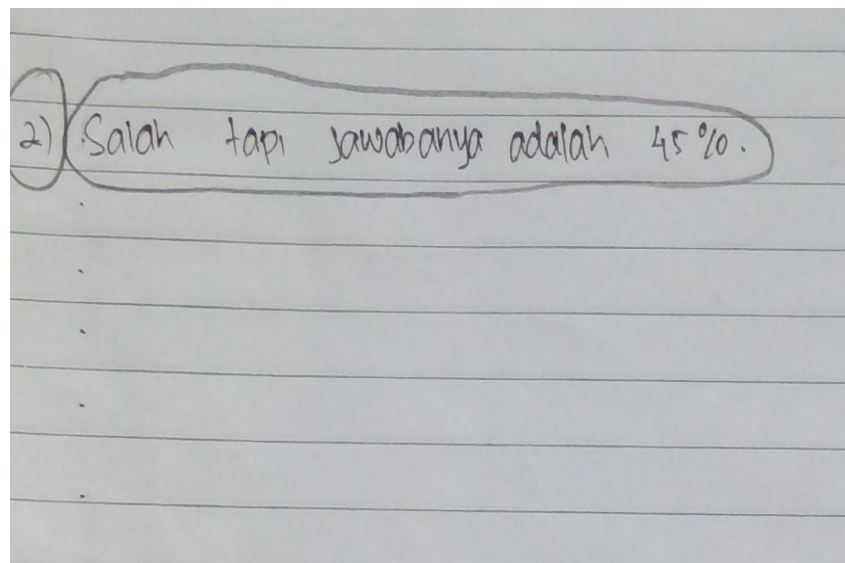 2) Salah tapi Jawabanya adalah 45%.